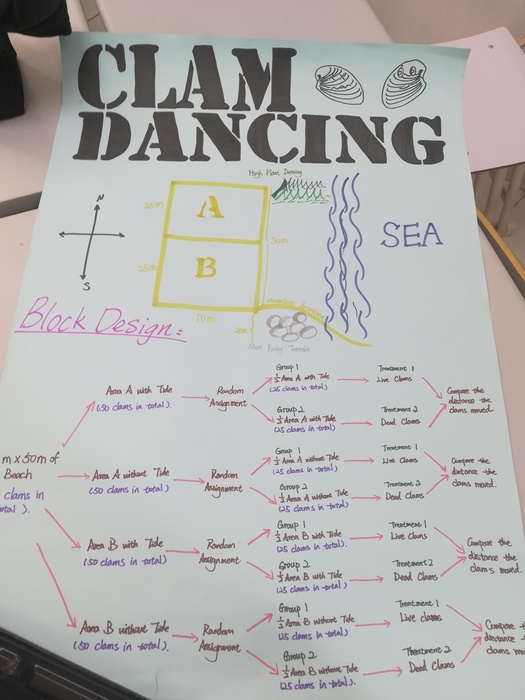 CLAM
DANCING
High Plant Density
N
S
25m
A
50m
SEA
25m
B
10m
20m
Block Design:
m x 50m of
Beach
clams in
total ).
Area A with Tide
(50 clams in total).
Random
Assignment
Group 1
½ Area A with Tide
(25 clams in total)
Treatment 1
Live Clams
Group 2
½ Area A with Tide
(25 clams in total)
Treatment 2
Dead Clams
Compare the
distance the
clams moved.
Area A without Tide
(50 clams in total)
Random
Assignment
Group 1
½ Area A without Tide
(25 clams in total)
Treatment 1
Live Clams
Group 2
½ Area A without Tide
(25 clams in total)
Treatment 2
Dead Clams
Compare the
distance the
clams moved.
Area B with Tide
(50 clams in total)
Random
Assignment
Group 1
½ Area B with Tide
(25 clams in total).
Treatment 1
Live Clams
Group 2
½ Area B with Tide
(25 clams in total)
Treatment 2
Dead Clams
Compare the
distance the
clams moved.
Area B without Tide
(50 clams in total).
Random
Assignment
Group 1
½ Area B without Tide
(25 clams in total)
Treatment 1
Live clams
Group 2
½ Area B without Tide
(25 clams in total).
Treatment 2
Dead Clams
Compare
distance
clams